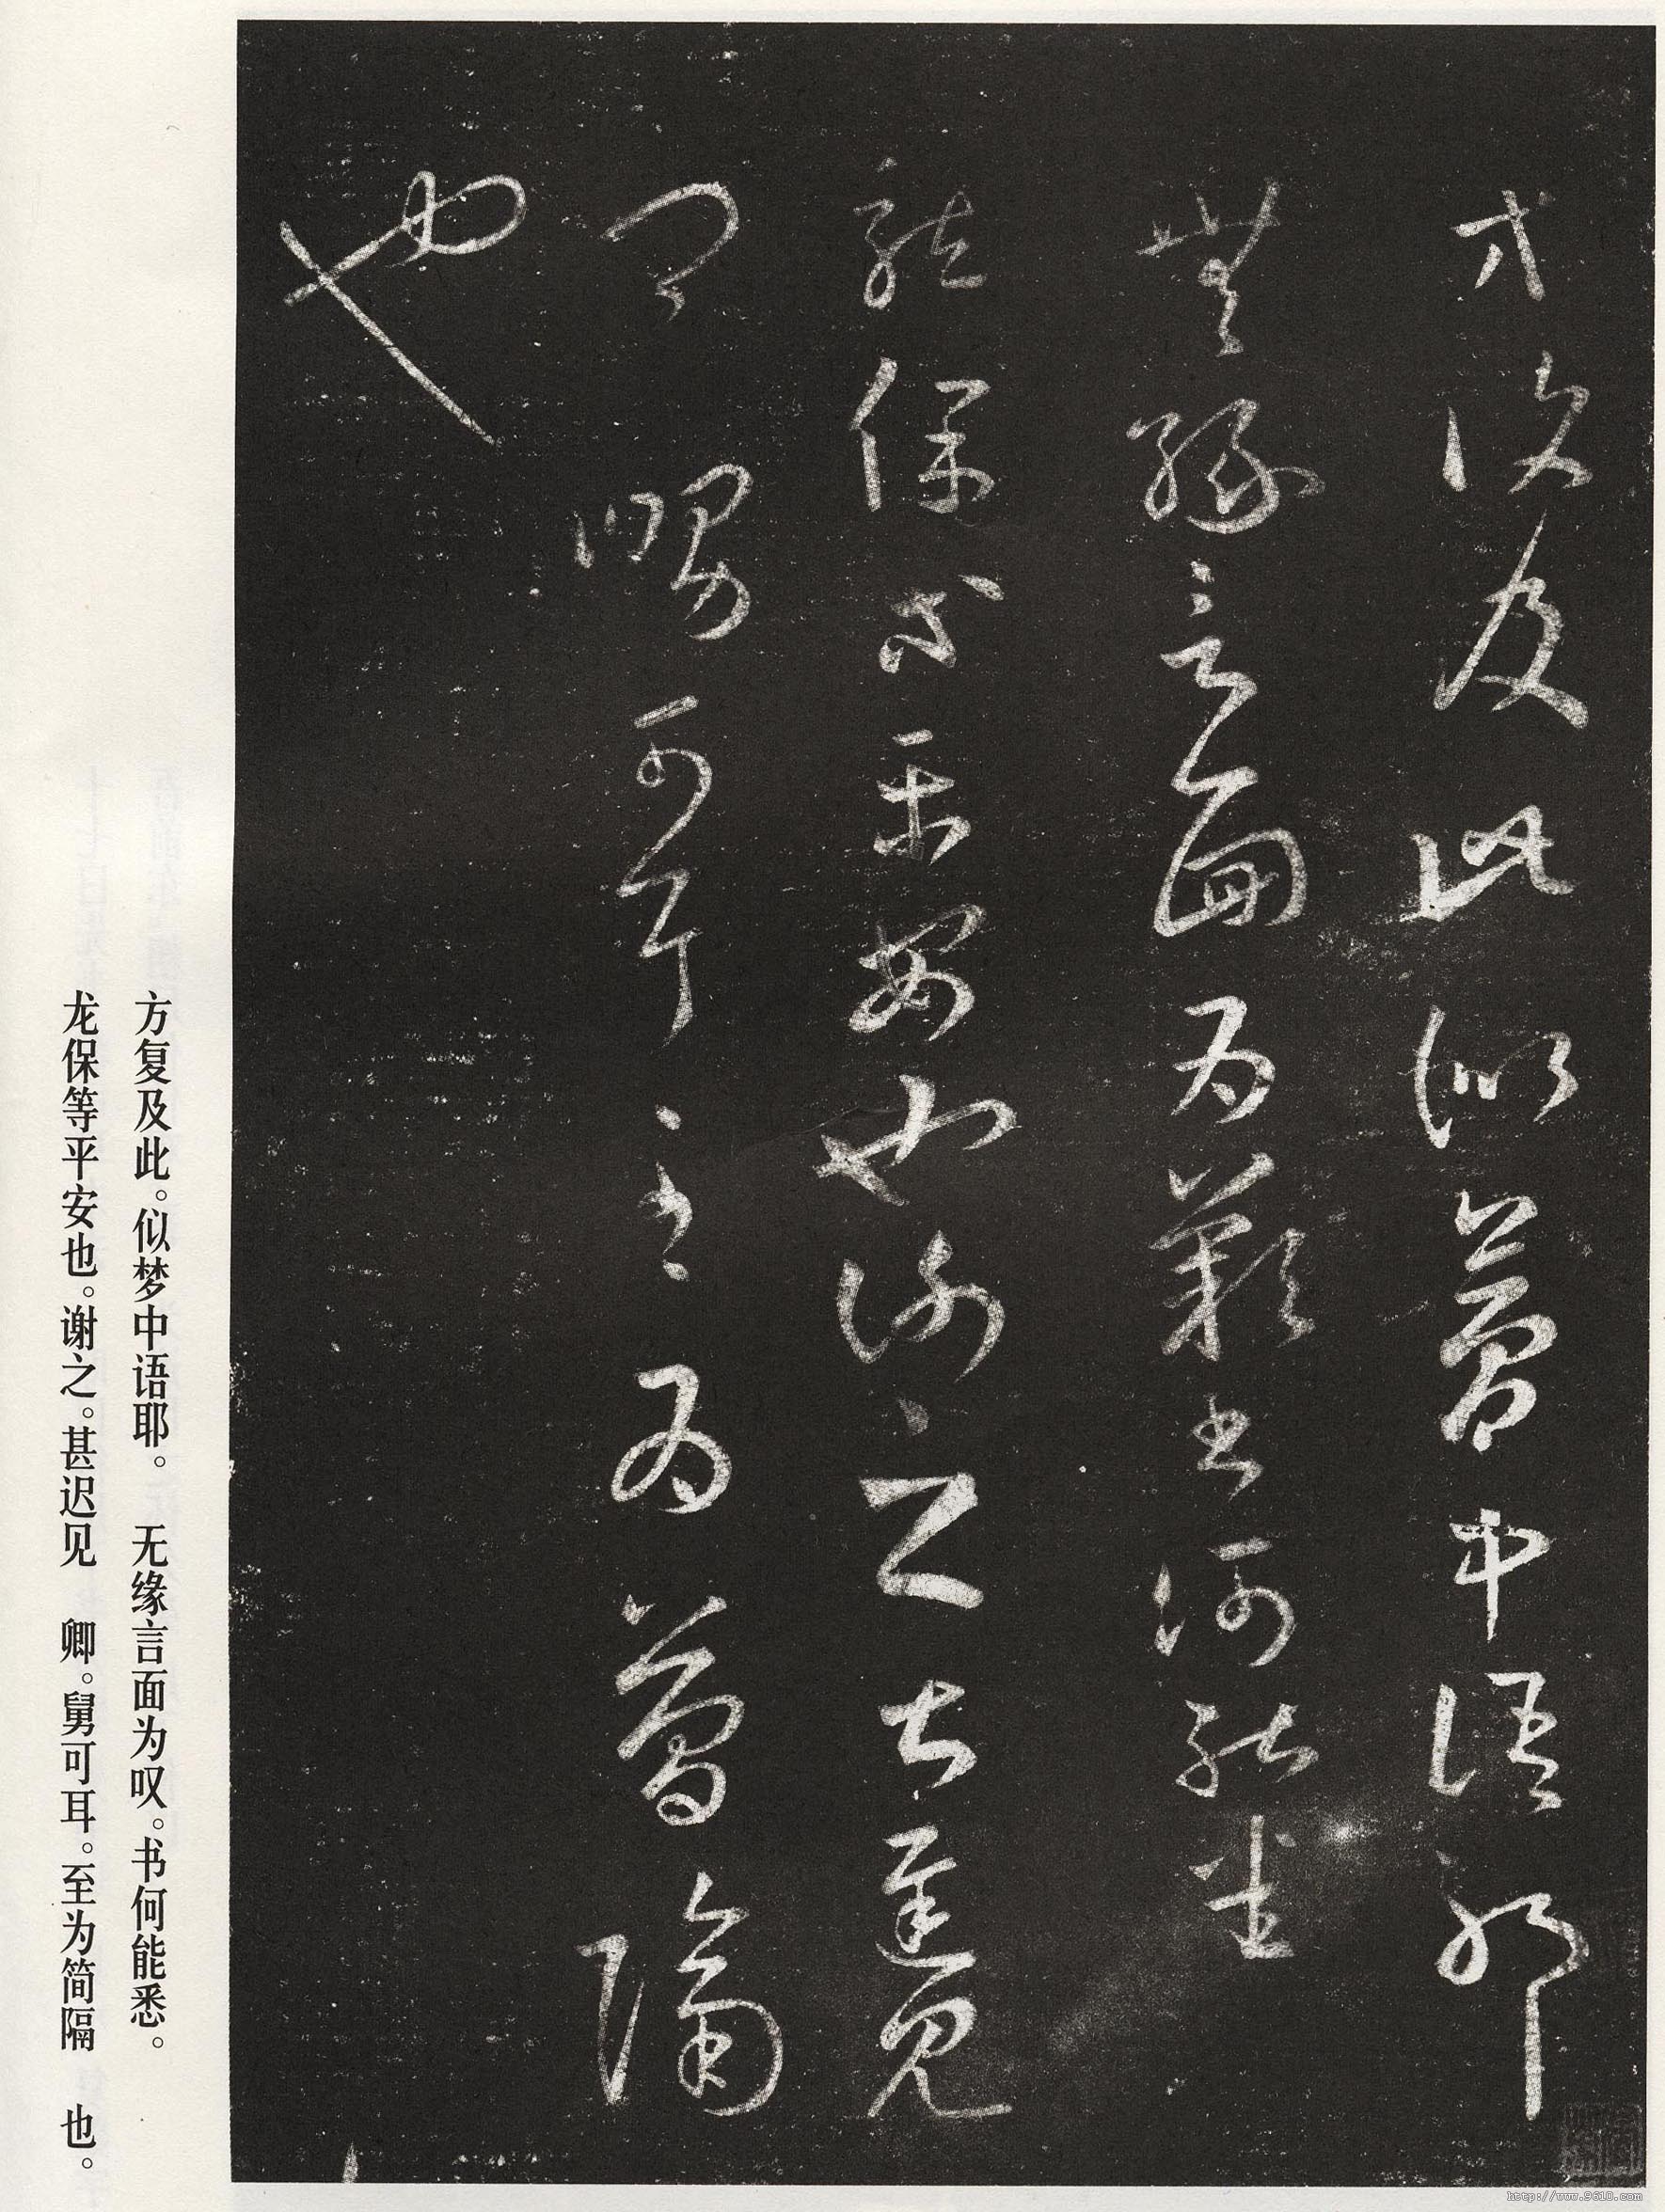 方復及此似夢中語耶
無緣言面為歎書何能悉
龍保等平安也謝之甚遲見
卿舅可耳至為簡隔
也
方复及此。似梦中语耶。 无缘言面为叹。书何能悉。
龙保等平安也。谢之。甚迟见 卿。舅可耳。至为简隔 也。
http://www.9610.com